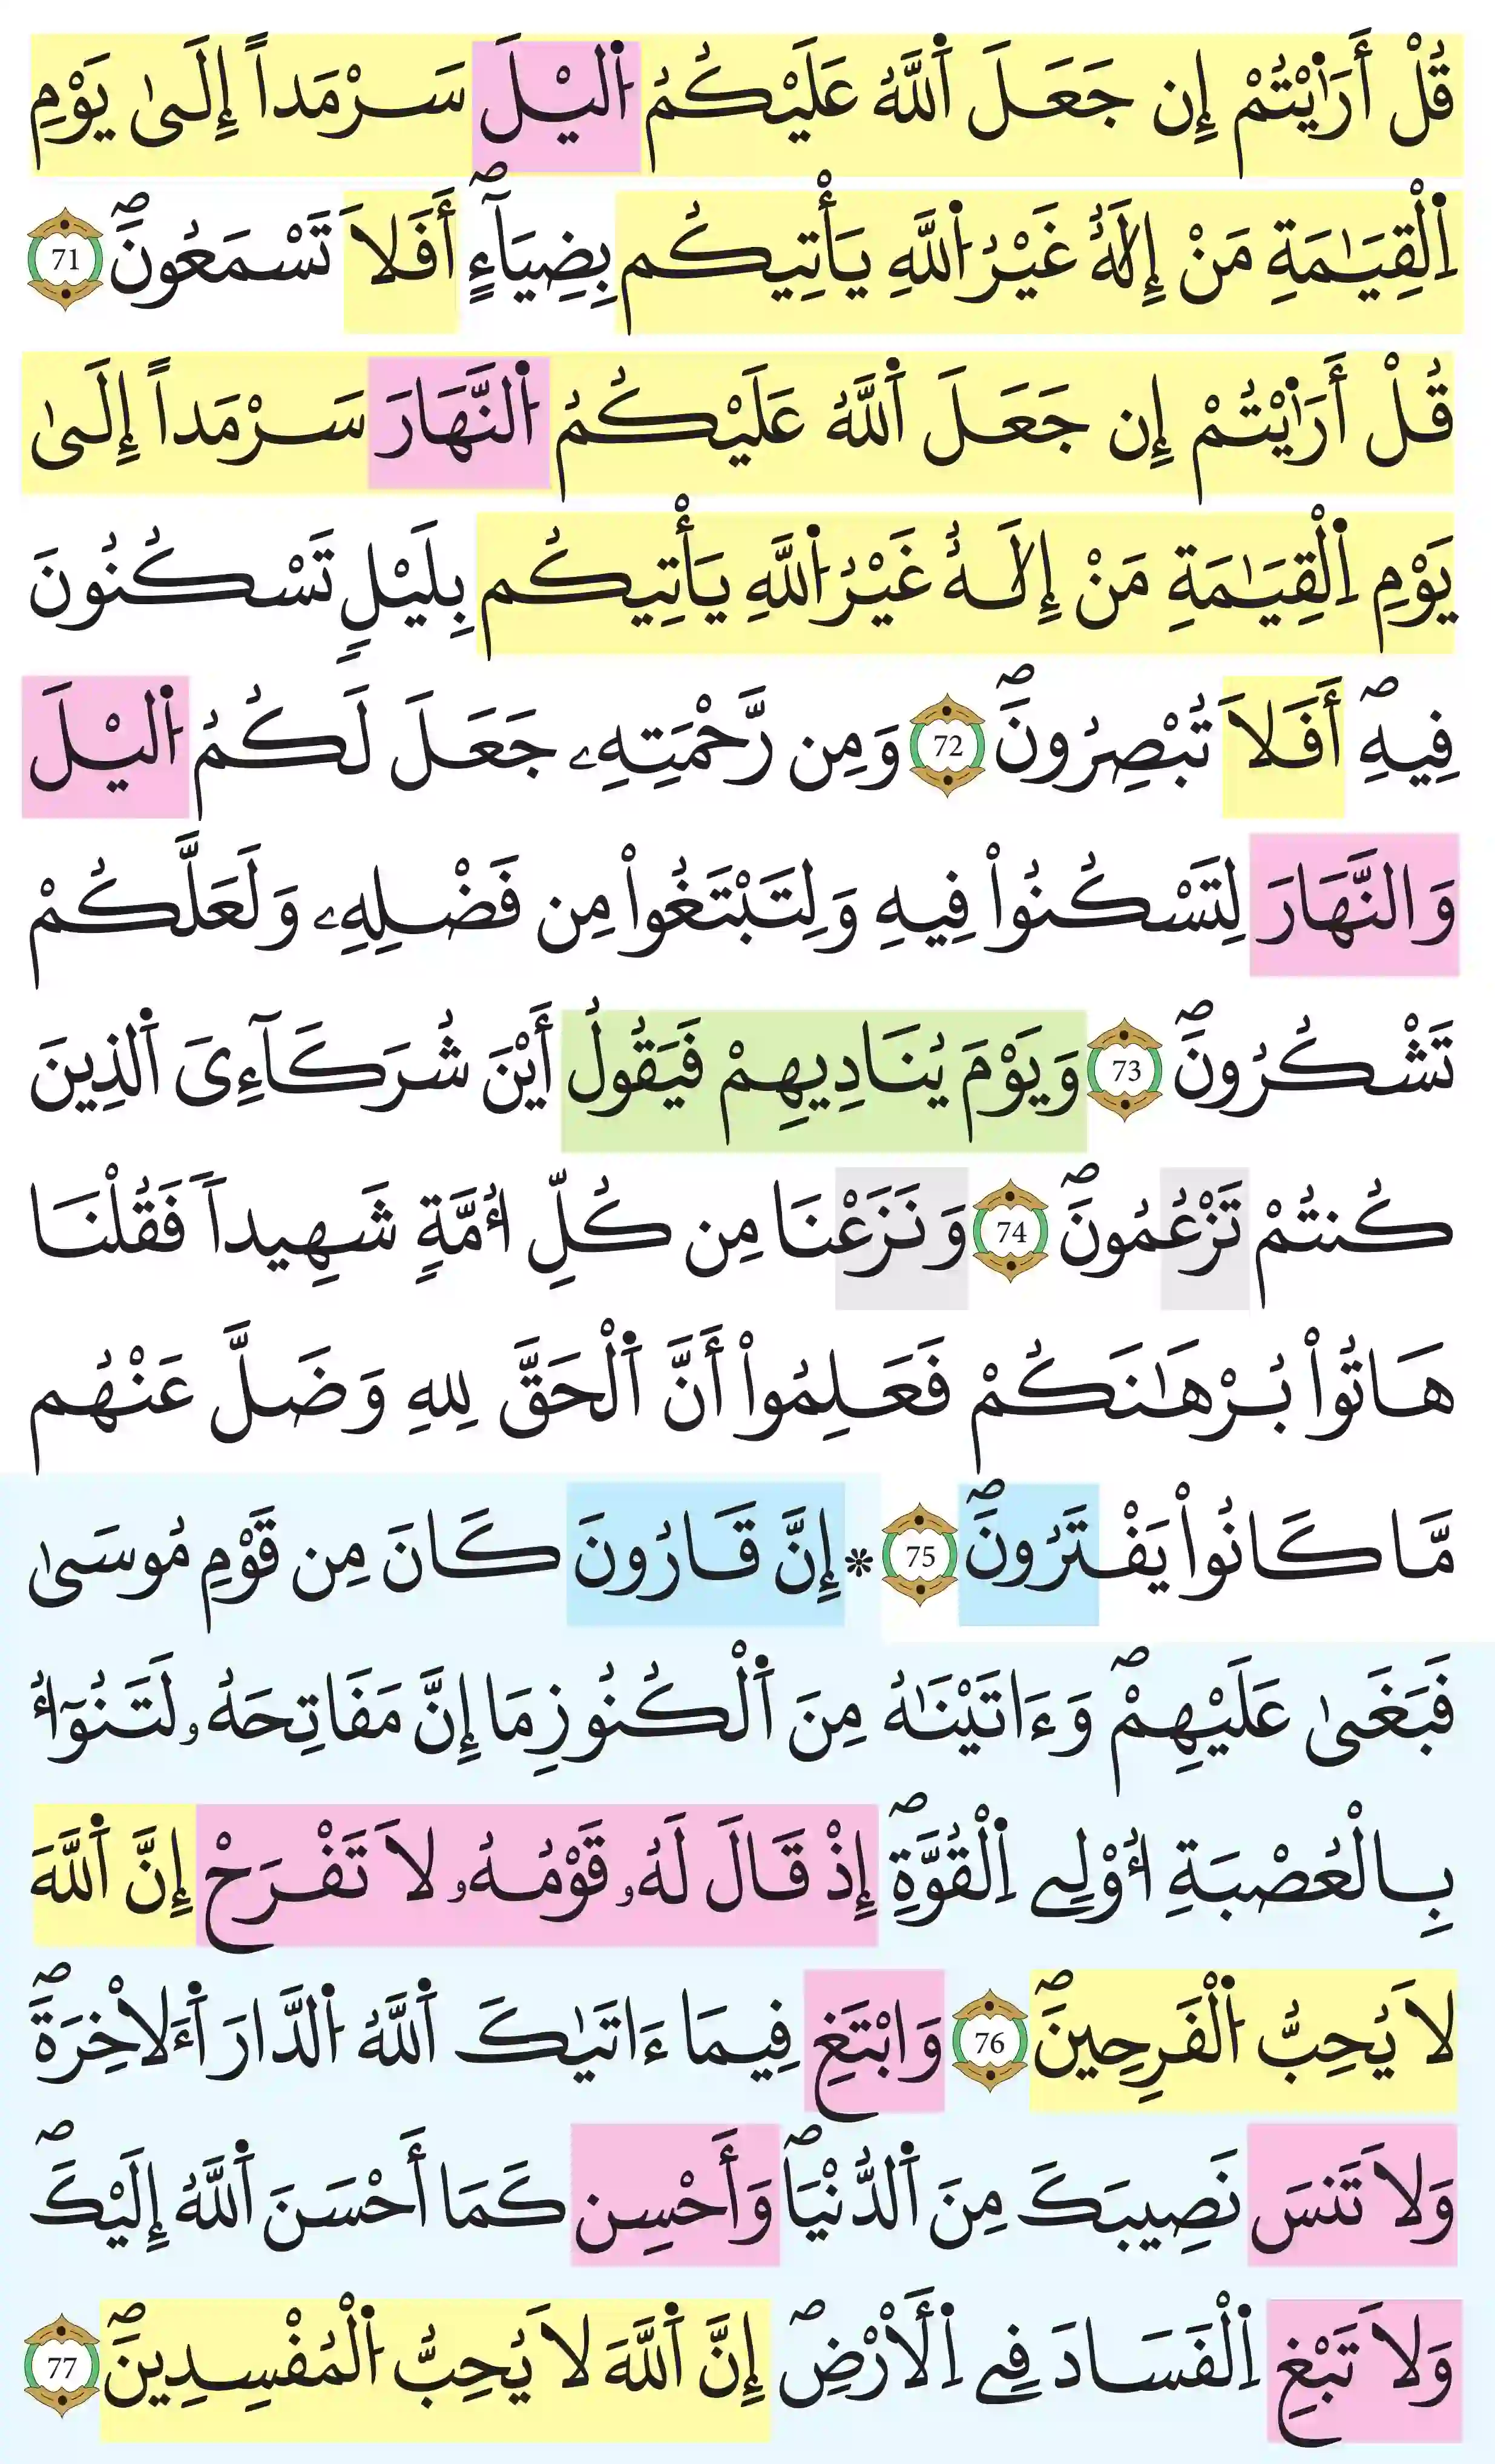 قُلْ أَرَٰيْتُمْ إِن جَعَلَ اَ۬للَّهُ عَلَيْكُمُ اُ۬ليْلَ سَرْمَداً إِلَىٰ يَوْمِ
اِ۬لْقِيَٰمَةِ مَنْ إِلَٰهٌ غَيْرُ اُ۬للَّهِ يَأْتِيكُم بِضِيَآءٍۖ أَفَلَا تَسْمَعُونَۖ 71
قُلْ أَرَٰيْتُمْ إِن جَعَلَ اَ۬للَّهُ عَلَيْكُمُ اُ۬لنَّهَارَ سَرْمَداً إِلَىٰ
يَوْمِ اِ۬لْقِيَٰمَةِ مَنْ إِلَٰهٌ غَيْرُ اُ۬للَّهِ يَأْتِيكُم بِلَيْلٍ تَسْكُنُونَ
فِيهِۖ أَفَلَا تُبْصِرُونَۖ 72 وَمِن رَّحْمَتِهِۦ جَعَلَ لَكُمُ اُ۬ليْلَ
وَالنَّهَارَ لِتَسْكُنُواْ فِيهِ وَلِتَبْتَغُواْ مِن فَضْلِهِۦ وَلَعَلَّكُمْ
تَشْكُرُونَۖ 73 وَيَوْمَ يُنَادِيهِمْ فَيَقُولُ أَيْنَ شُرَكَآءِيَ اَ۬لذِينَ
كُنتُمْ تَزْعُمُونَۖ 74 وَنَزَعْنَا مِن كُلِّ أُمَّةٍ شَهِيداً فَقُلْنَا
هَاتُواْ بُرْهَٰنَكُمْ فَعَلِمُواْ أَنَّ اَ۬لْحَقَّ لِلهِ وَضَلَّ عَنْهُم
مَّا كَانُواْ يَفْتَرُونَۖ 75 * إِنَّ قَارُونَ كَانَ مِن قَوْمِ مُوسَىٰ
فَبَغَىٰ عَلَيْهِمْۖ وَءَاتَيْنَٰهُ مِنَ اَ۬لْكُنُوزِ مَا إِنَّ مَفَاتِحَهُۥ لَتَنُوٓأُ
بِالْعُصْبَةِ أُوْلِے اِ۬لْقُوَّةِۖ إِذْ قَالَ لَهُۥ قَوْمُهُۥ لَا تَفْرَحْ إِنَّ اَ۬للَّهَ
لَا يُحِبُّ اُ۬لْفَرِحِينَۖ 76 وَابْتَغِ فِيمَا ءَاتَيٰكَ اَ۬للَّهُ اُ۬لدَّارَ اَ۬ءَلَاخِرَةَۖ
وَلَا تَنسَ نَصِيبَكَ مِنَ اَ۬لدُّنْيَاۖ وَأَحْسِن كَمَا أَحْسَنَ اَ۬للَّهُ إِلَيْكَۖ
وَلَا تَبْغِ اِ۬لْفَسَادَ فِے اِ۬لَأرْضِۖ إِنَّ اَ۬للَّهَ لَا يُحِبُّ اُ۬لْمُفْسِدِينَۖ 77